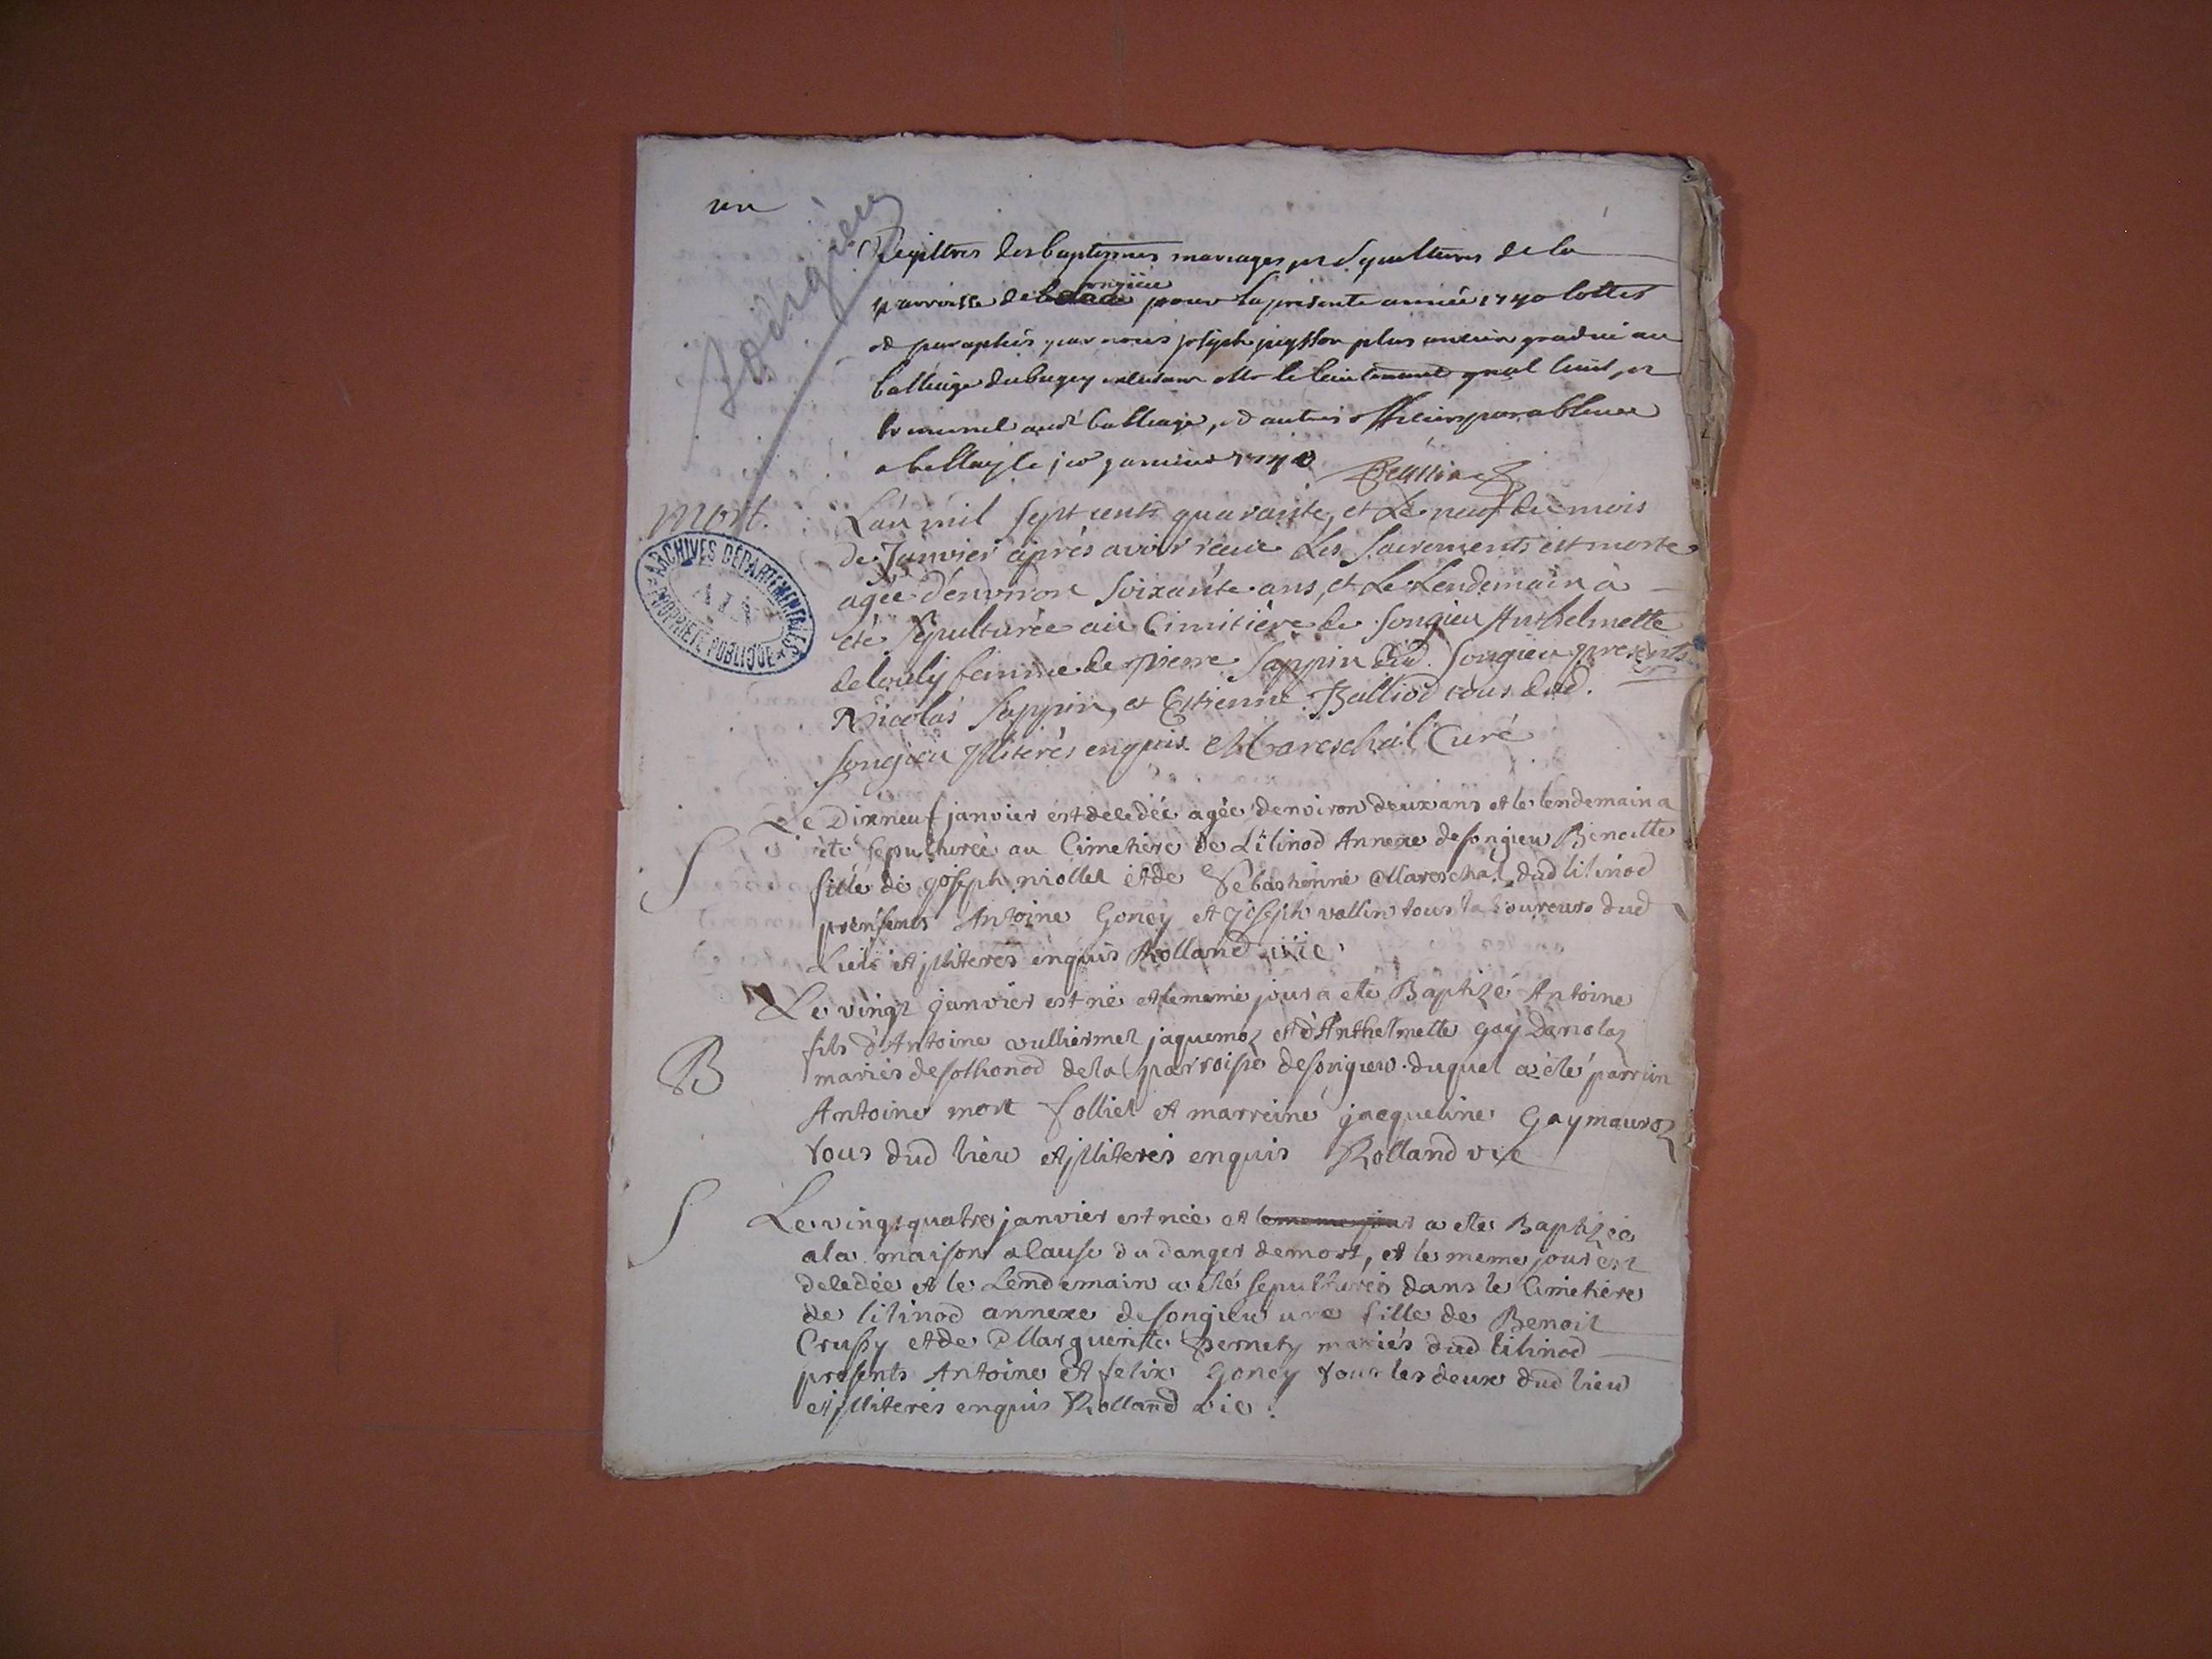 un
Songieu
Registres des baptesmes mariages et sepultures de la
parroisse de songieu pour la presente année 1740 cottes
et paraphés par nous joseph peysson plus ancien gradué au
balliage dubugey Mr le lieutenant gnal civil et
criminel aud balliage, et autres officiers par absence
a bellay le per janvier 1740
mort.
ARCHIVES DÉPARTEMENTALES
AIN
PROPRIÉTÉ PUBLIQUE
L'an mil sept cents quarante, et Le neuf du mois
de Janvier après avoir receu Les Sacrements est morte
agée d'environ soixante ans, et Le Lendemain à
été sepulturée au Cimitière de Songieu Anthelmette
femme de Pierre Sappin dud. Songieu presents
Nicolas Sappin, et Estienne Balliod tous dud.
Songieu Illiterés enquis Mareschal Curé
S
Le Dixneuf janvier est decedée agée denviron deux ans et le lendemain a
été sepulturée au Cimetiere de Lilinod Annexe de songieu Benoitte
fille de joseph niollet et de Sebastienne Mareschal dud lilinod
presents Antoine Goney et joseph vallin tous laboureurs dud
Lieu et jlliteres enquis Rolland vic
B
Le vingt janvier est né et le meme jour a ete Baptizé Antoine
fils d'Antoine vulliermet jaquemoz et d'Anthelmette Gay Danolaz
mariés de sothonod de la parroisse de songieu duquel a été parrin
Antoine mort folliet et marreine jacqueline Gaymauroz
tous dud lieu et jlliteres enquis Rolland vic
S
Le vingtquatre janvier est née et le meme jour a ete Baptizée
a la maison a Cause du danger de mort, et le meme jour est
decedée et le Lendemain a été sepulturée dans le Cimetiere
de lilinod annexe de songieu une fille de Benoit
Crussy et de Marguerite Bernety mariés dud lilinod
presents Antoine et felix Goney tous les deux dud lieu
et jlliteres enquis Rolland vic.